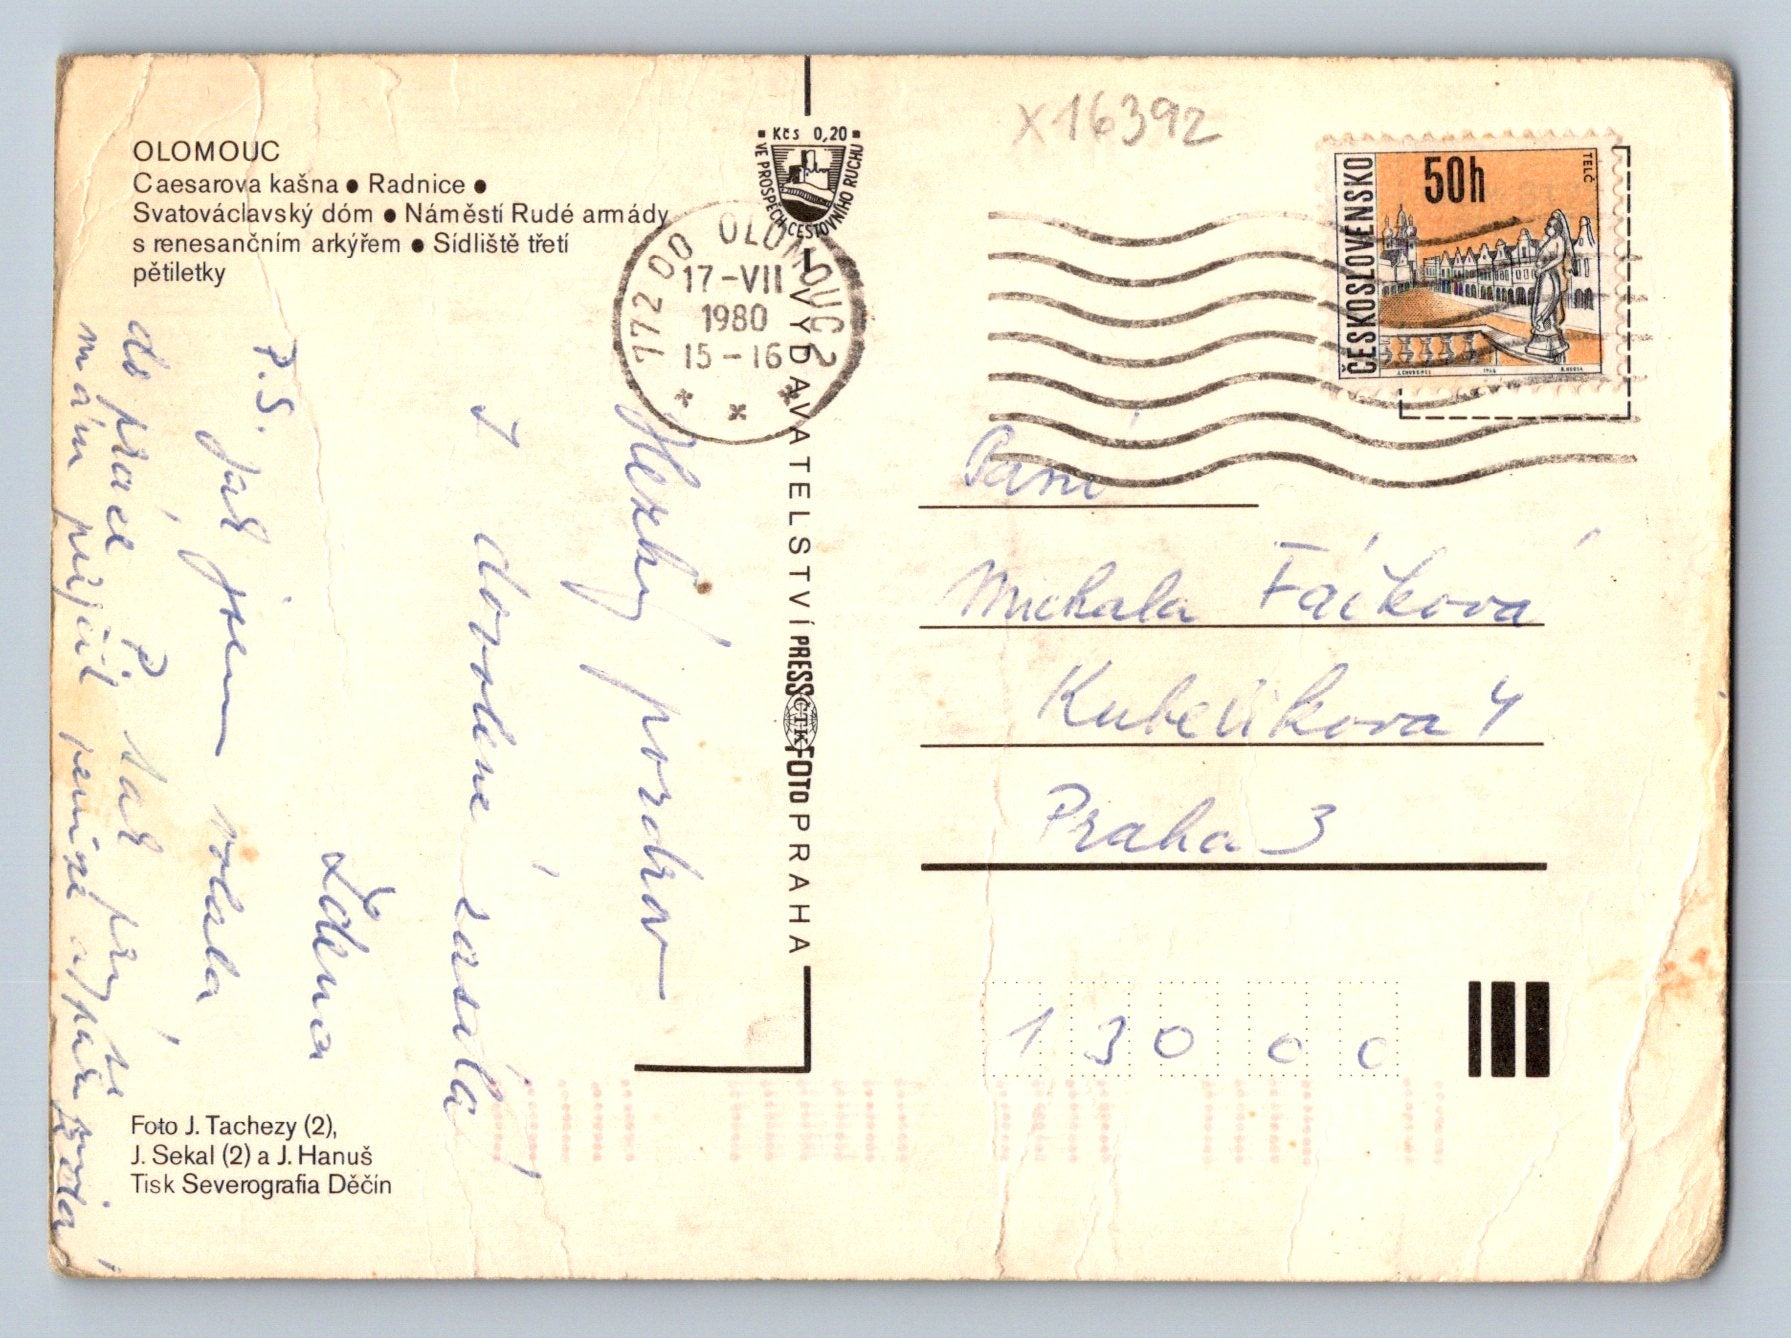 OLOMOUC
Caesarova kašna ● Radnice ●
Svatováclavský dóm ● Náměstí Rudé armády
s renesančním arkýřem ● Sídliště třetí
pětiletky
Hezký pozdrav
z dovolené zasílá
Zdena
P.S.
jak jsem volala
do práce
mám přijít peníze
Foto J. Tachezy (2),
J. Sekal (2) a J. Hanuš
Tisk Severografia Děčín
Kčs 0,20
VE PROSPĚCH CESTOVNÍHO RUCHU
772 00 OLOMOUC 2
17-VII
1980
15-16
VYDAVATELSTVÍ PRESSFOTO PRAHA
ČTK
X16392
ČESKOSLOVENSKO
50h
TELČ
Paní
Michala Fáčková
Kubelíkova 4
Praha 3
13000